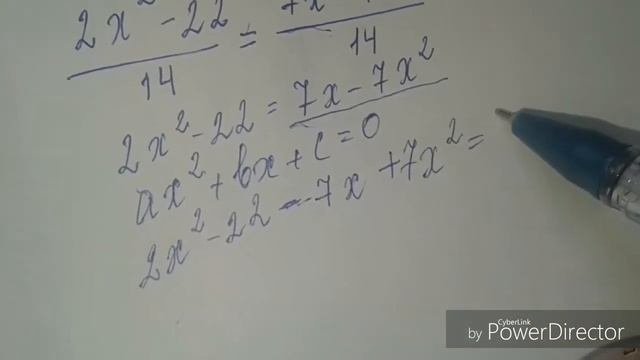 2x² - 22 =
14 14
2x² - 22 = 7x - 7x²
ax² + bx + c = 0
2x² - 22 - 7x + 7x² =
CyberLink
by PowerDirector